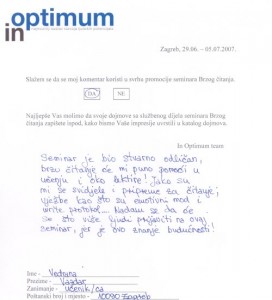 in optimum
Zagreb, 29.06. – 05.07.2007.
Slažem se da se moj komentar koristi u svrhu promocije seminara Brzog čitanja.
DA NE
Najljepše Vas molimo da svoje dojmove sa službenog dijela seminara Brzog
čitanja zapišete ispod, kako bismo Vaše impresije uvrstili u katalog dojmova.
In Optimum team
Seminar je bio stvarno odličan,
brzo čitanje će mi puno pomoći u
učenju i oko lektire! Jako su
mi se svidjele i pripreme za čitanje;
vježbe kao što su emotivni mod i
write protokol... Nadam se da će
se što više ljudi prijaviti na ovaj
seminar, jer je ovo znanje budućnosti!
Ime - Vedrana
Prezime - Vazdar
Zanimanje - učenik/ca
Poštanski broj i mjesto - 10090 Zagreb